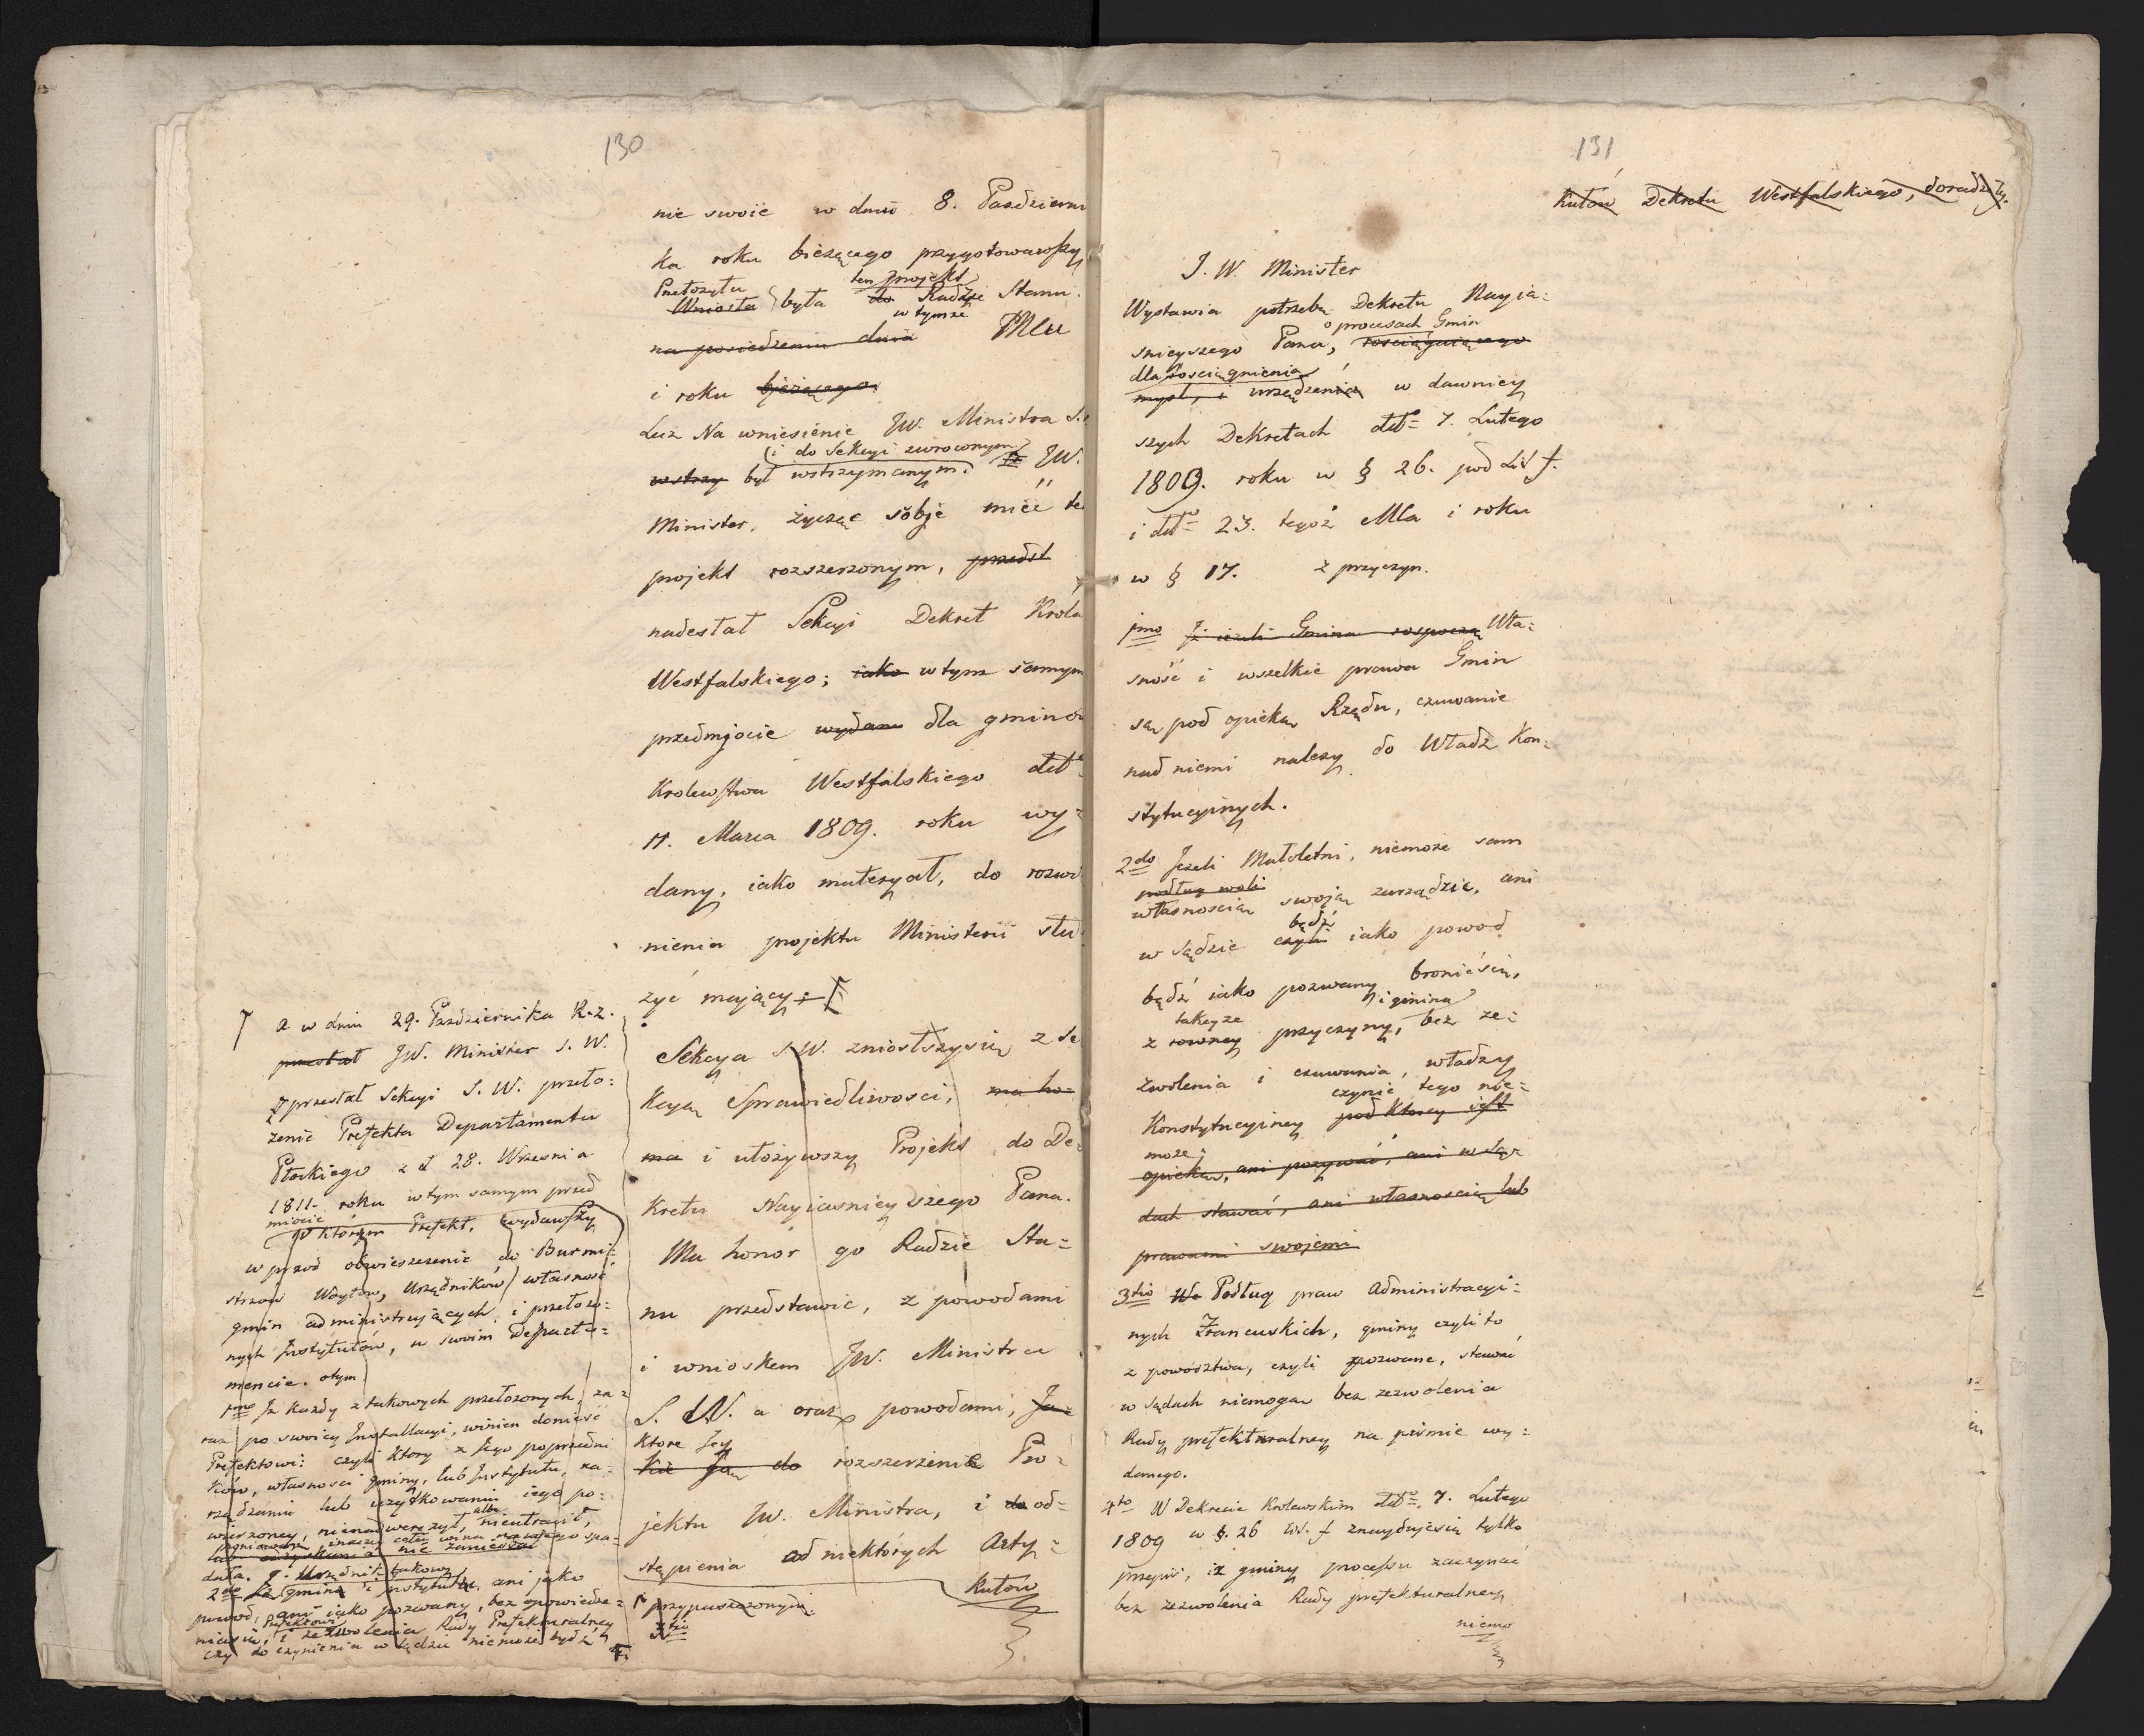 130
nie swoie w dniu 8. Pazdzierni
ka roku bieżącego przygotowawszy
Przełożyła ten projekt
Wniosła była do Radzie Stanu.
w tymże
na posiedzeniu dnia Mcu
i roku bieżącego.
Lecz Na wniesienie JW. Ministra S.
(i do Sekcyi zwroconym)
wstrzy był wstrzymanym. JW.
Minister, życząc sobie mieć te
projekt rozszerzonym, przedst
nadesłał Sekcyi Dekret Króla
Westfalskiego; iako w tym samym
przedmjocie wydane dla gminów
Krolewstwa Westfalskiego dto
11. Marca 1809. roku wy=
dany, iako materyał, do rozwi
nienia projektu Ministerii słu
żyć mający;
Sekcya S.W. zniosłszysię z Se
kcyą Sprawiedliwosci, ma ho=
ma i ułożywszy Projekt do De=
kretu Nayiasnieyszego Pana.
Ma honor go Radzie Sta=
nu przedstawić, z powodami
i wnioskem JW. Ministra
S. W. a oraz powodami, Ja=
Które Jey
kie Ją do rozszerzenie Pro=
jektu JW. Ministra, i do od=
stąpienia od niektórych Arty=
kułow
przypuszczonym.
3tio
a w dniu 29. Pazdziernika R.z.
przesłał JW. Minister S. W.
przesłał Sekcyi S. W. przeło=
żenie Prefekta Departamentu
Płockiego z d 28. Wrzesnia
1811. roku w tym samym przed
miocie
w którym Prefekt, wydawszy
w przod obwieszczenie do Burmi=
strzow Woytow, Urzędników własność
gmin administrujących, i przełożo=
nych Instytutów, w swoim Departa=
mencie. otym
1mo Iż Każdy z takowych przełożonych, za=
raz po swoiey Installacyi, winien donieść
Prefektowi: czyli ktory z jego poprzedni
ków, własności gminy, lub Instytutu, za=
rządzaniu lub użytkowaniu iego po=
albo
wierzoney, nienadwerężył, nieutracił,
nie zaniedbał
2do gmina i Instytuta, ani jako
powod, ani iako pozwany, bez opowiedze=
Prefektowi
niasię, i zezwolenia Rady Prefekturalney
czy do czynienia w Sądzie nie może bydź
131
kułow Dekretu Westfalskiego, doradziły.
J. W. Minister
Wystawia potrzebę Dekretu Nayia=
o procesach Gmin
snieyszego Pana, rosciągaiącego
dla rosciągnienia
myśl, i urządzenia w dawniey
szych Dekretach dto 7. Lutego
1809. roku w § 26. pod Lit f.
i dto 23. tegoż Mca i roku
w § 17. z przyczyn.
1mo Iż ieżeli Gmina rospoczą Wła=
sność i wszelkie prawa Gmin
są pod opieką Rządu, czuwanie
nad niemi należy do Władz Kon=
stytucyinych.
2do Jeżeli Małoletni, niemoże sam
podług woli
własnoscią swoją zarządzić, ani
bądź
w Sądzie czyli iako powod
bądź iako pozwany bronić się,
takeyże i gmina
z rowney przyczyny, bez ze=
zwolenia i czuwania, władzy
czynić tego nie=
Konstytucyiney pod ktorey iest
może;
opieką, ani pozywać, ani w Są=
dach stawać, ani własnoscią lub
prawami swojemi
3tio We Podług praw Administracyi=
nych Francuskich, gminy czyli to
z powodztwa, czyli pozwane, stawać
w Sądach niemogą bez zezwolenia
Rady prefekturalney na pismie wy=
danego.
4to W Dekrecie Krolewskim dto 7. Lutego
1809 w §. 26 lit. f znayduiesię tylko
przepis, iż gminy processu zaczynać
bez zezwolenia Rady prefekturalney
niemo